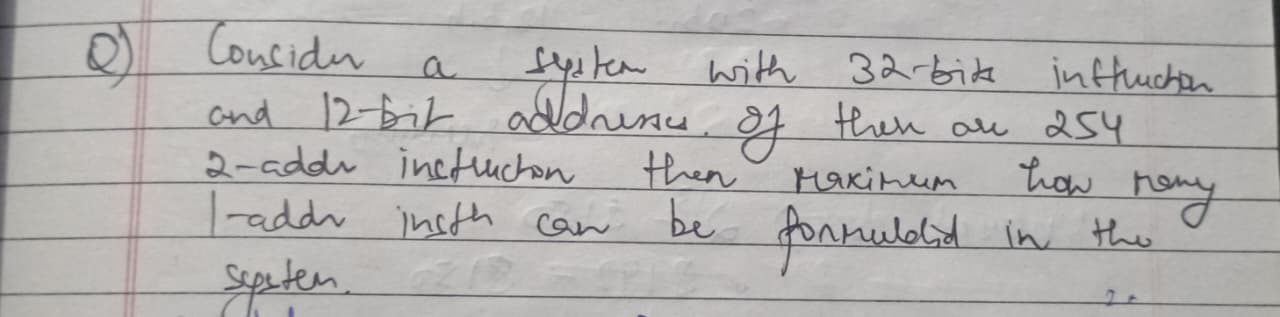 Q) Consider a system with 32-bit instruction
and 12-bit addresses. If there are 254
2-addr instruction then maximum how many
1-addr instn can be formulated in the
system.